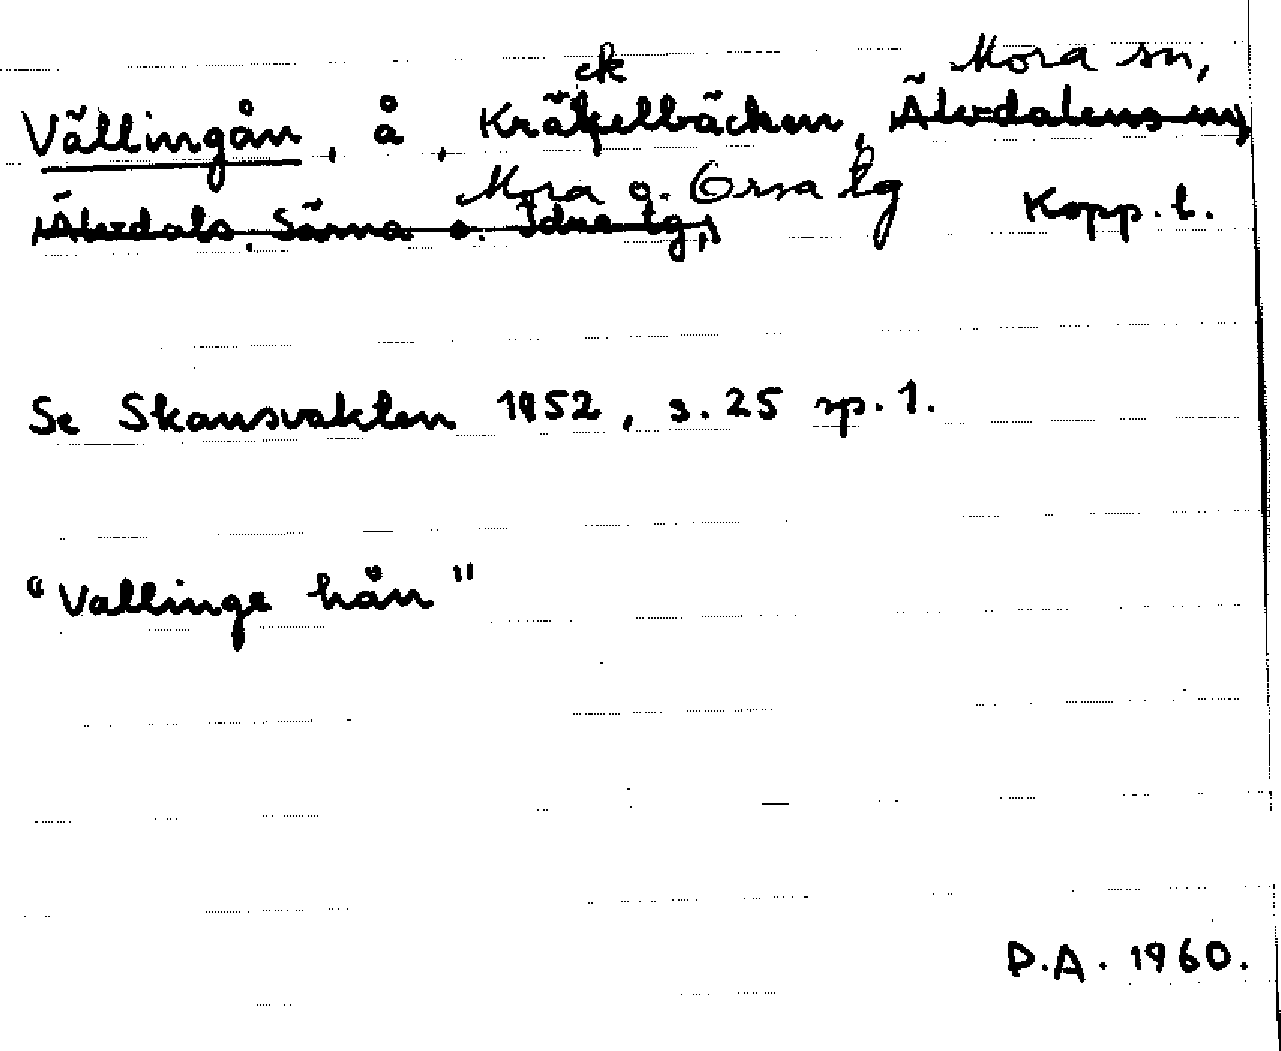 ck Mora sn,
Vällingån, å, Kräkelbäcken, Älvdalens sn,
Mora o. Orsa tg
Älvdals, Särna o. Idre tg, Kopp. l.
Se Skansvakten 1952, s. 25 sp. 1.
"Vallinge hån"
D.A. 1960.